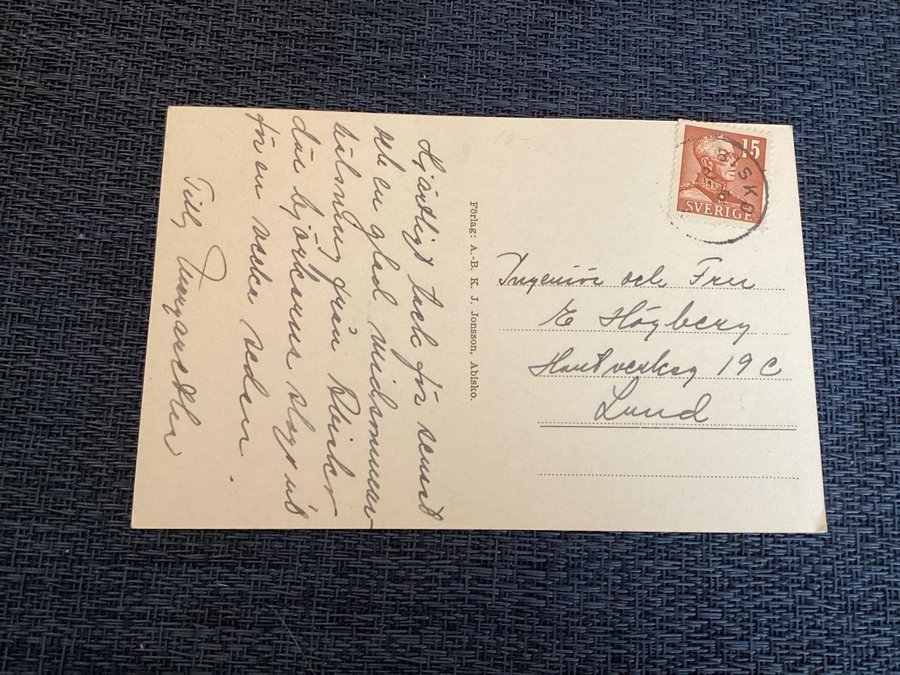 Hjärtligt tack för senast
och en glad midsommar-
hälsning från Abisko
där björkarna slogo ut
för en vecka sedan.
Förlag: A.-B. K. J. Jonsson, Abisko.
15
SVERIGE
ABISKO
Ingeniör och Fru
E Högberg
Hantverksg 19 C
Lund
10-